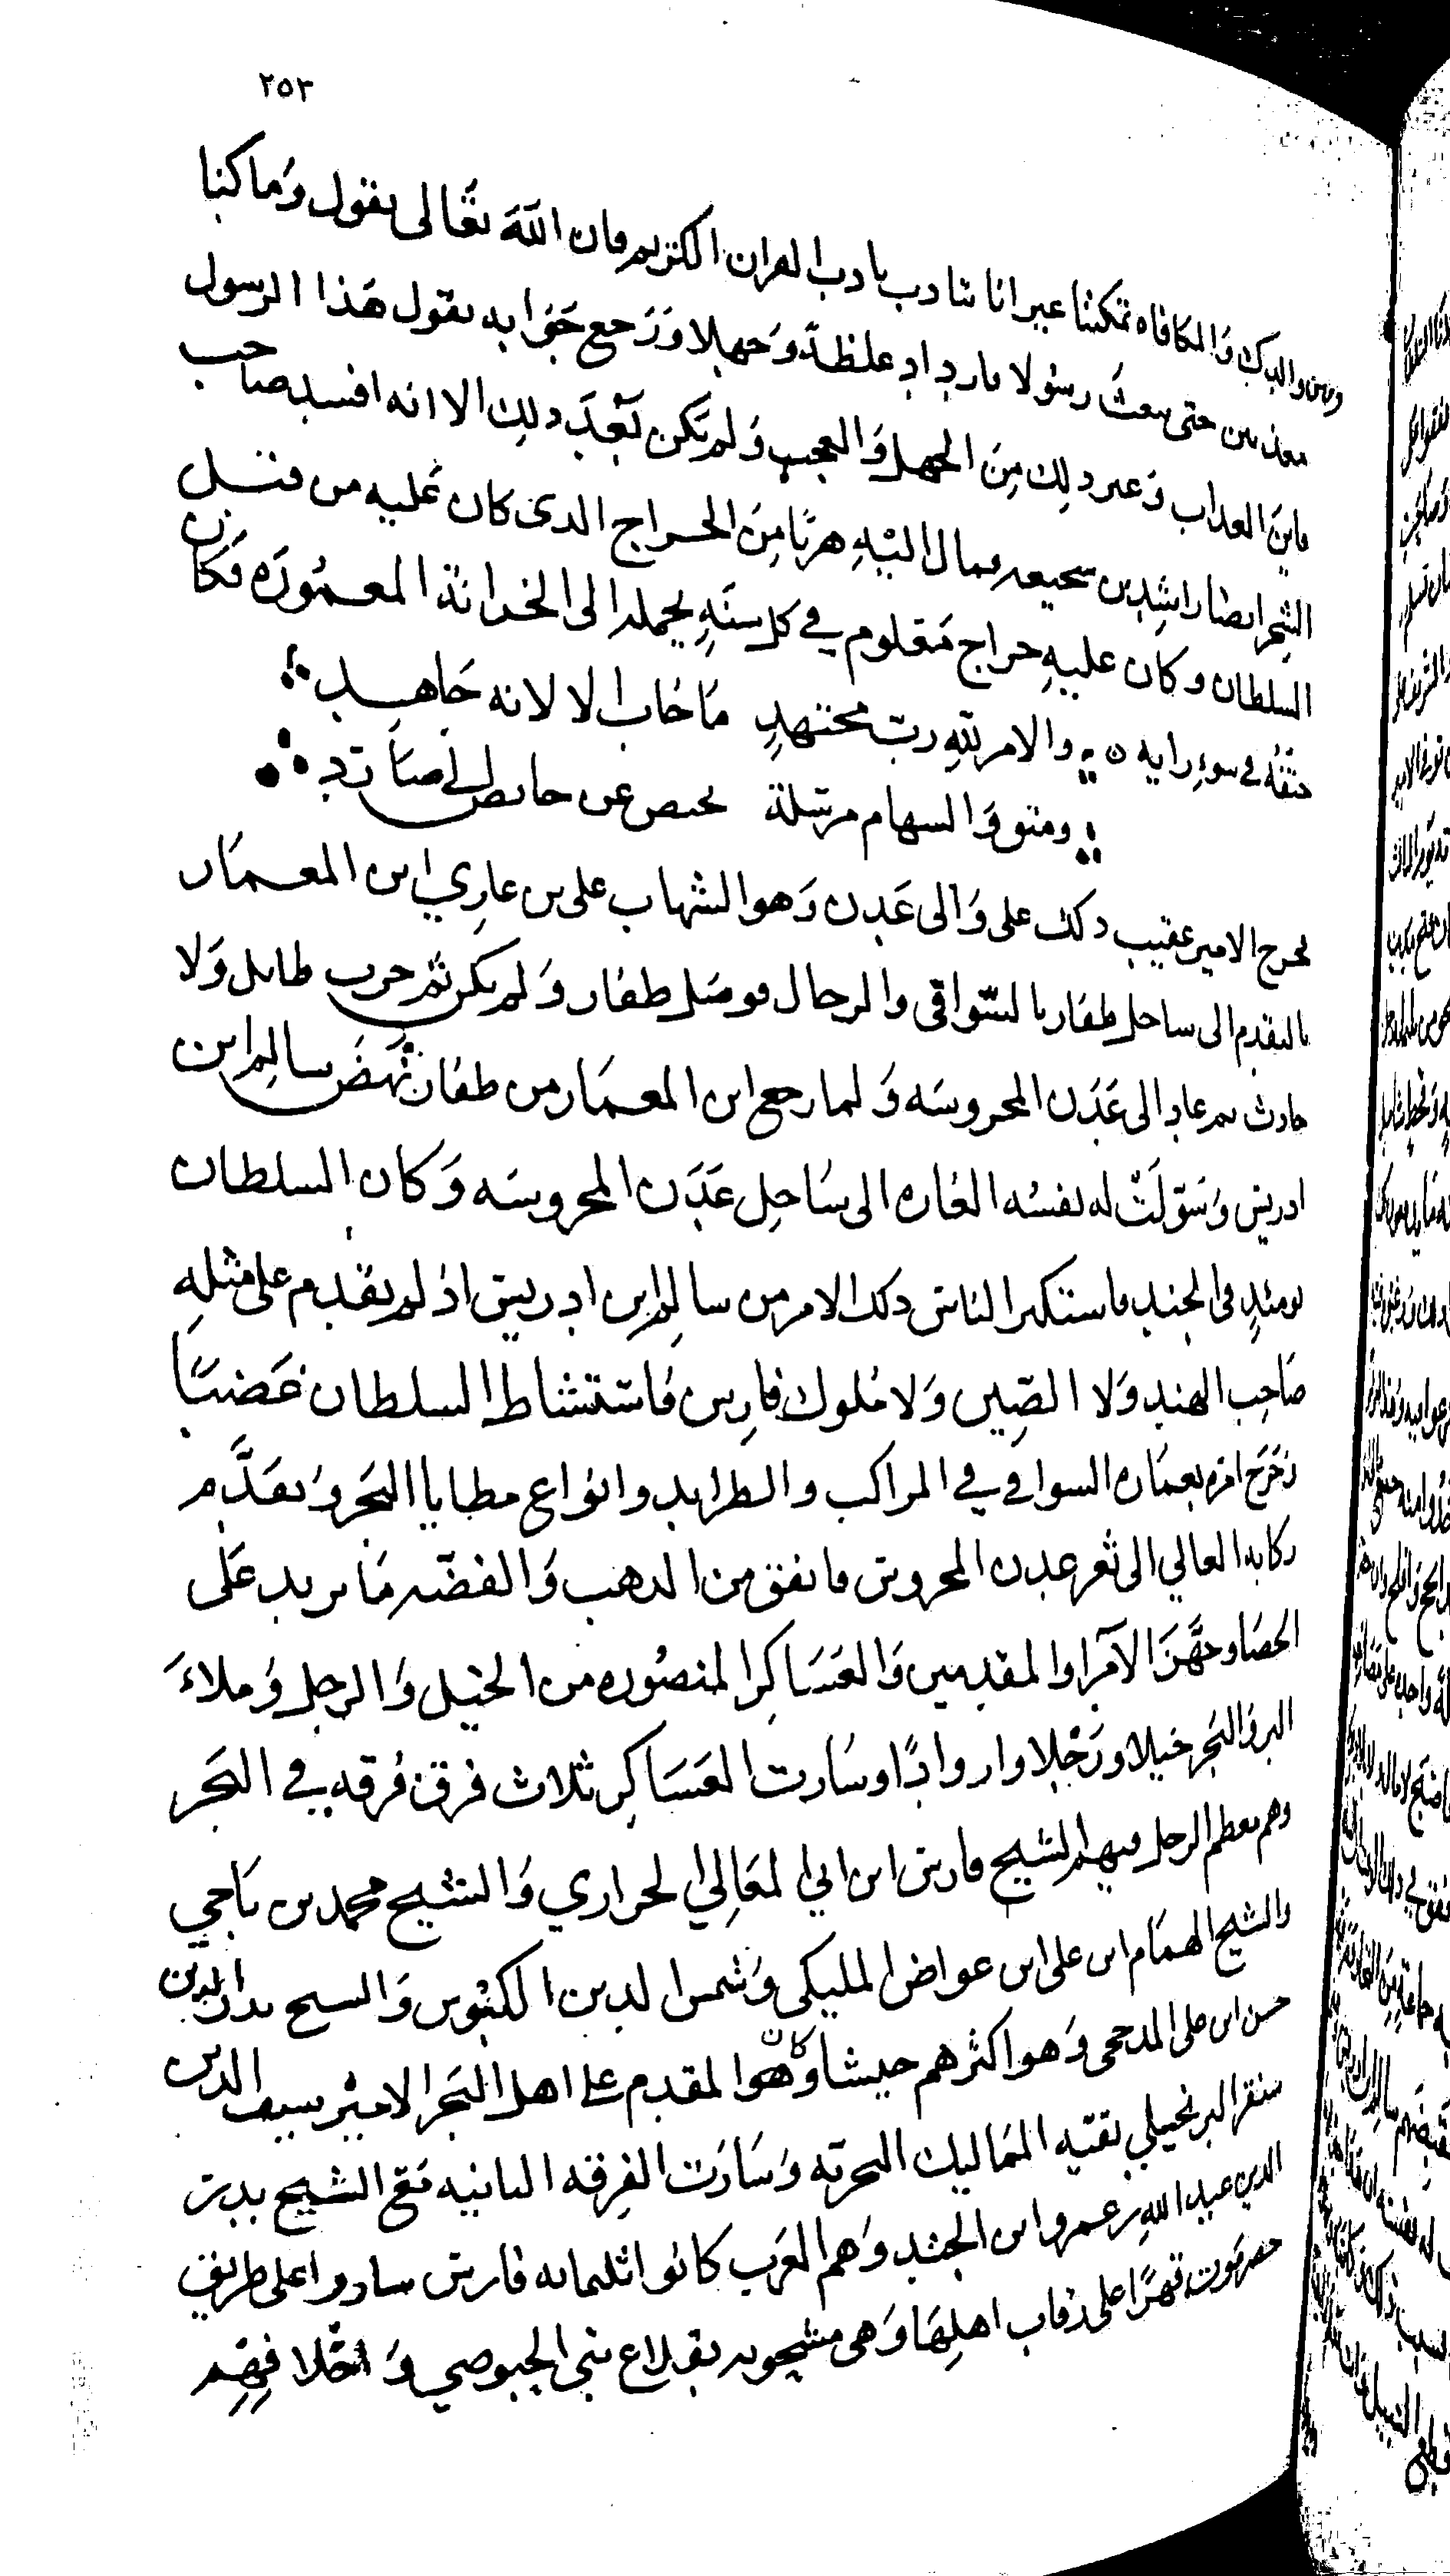 ٢٥٣
ومن والدك والمكافاه تمكننا غير انا نتادب بادب القران الكريم فان الله تعالى يقول وما كنا
معذبين حتى نبعث رسولا فازداد غلظة وجهلا ورجع جوابه يقول هذا الرسول
فاين العذاب وغير ذلك من الجهل والعجب ولم يكن بعد ذلك الا انه افسد صاحب
الشحر ايضا راشد بن شجيعه فمال اليه هربا من الخراج الذى كان عليه من قبل
السلطان وكان عليه خراج معلوم في كل سنه يحمله الى الخزانة المعموره فكان
حتفه في سوء رايه ه والامر لله رب مجتهد ما خاب الا لانه جاهد
ومتق والسهام مرسلة يحيص عن حابض الى صارد
فخرج الامير عقيب ذلك على والى عدن وهو الشهاب على بن غازي ابن المعمار
بالتقدم الى ساحل ظفار بالشواني والرجال فوصل ظفار ولم يكن ثم حرب طايل ولا
حادث ثم عاد الى عدن المحروسه ولما رجع ابن المعمار من ظفار نهض سالم ابن
ادريس وسولت له نفسه الغاره الى ساحل عدن المحروسه وكان السلطان
يومئذ في الجند فاستكبر الناس ذلك الامر من سالم ابن ادريس اذ لم يقدم على مثله
صاحب الهند ولا الصين ولا ملوك فارس فاستشاط السلطان غضبا
وخرج امره بعماره الشواني في المراكب والطرايد وانواع مطايا البحر وتقدم
ركابه العالي الى ثغر عدن المحروس فانفق من الذهب والفضه ما يزيد على
الحصا وجهز الامرا والمقدمين والعساكر المنصوره من الخيل والرجل وملاء
البر والبحر خيلا ورجلا وازوادا وسارت العساكر ثلاث فرق فرقه في البحر
وهم معظم الرجل فيهم الشيخ فارس ابن ابي المعالي الحراري والشيخ محمد بن ناجي
والشيخ الهمام ابن على ابن عواض المليكى وشمس الدين الكبوس والشيخ بدر الدين
حسن ابن على المذحجى وهو اكثرهم جيشا وكان هو المقدم على اهل البحر الامير سيف الدين
سنقر البرنجيلي بقيه المماليك البحريه وسارت الفرقه الثانيه مع الشيخ بدر
الدين عبد الله بن عمرو ابن الجند وهم العرب كانوا ثلثمايه فارس ساروا على طريق
حضرموت قهرا على رقاب اهلها وهى مشحونه بقلاع بنى الحبوضي واحلافهم